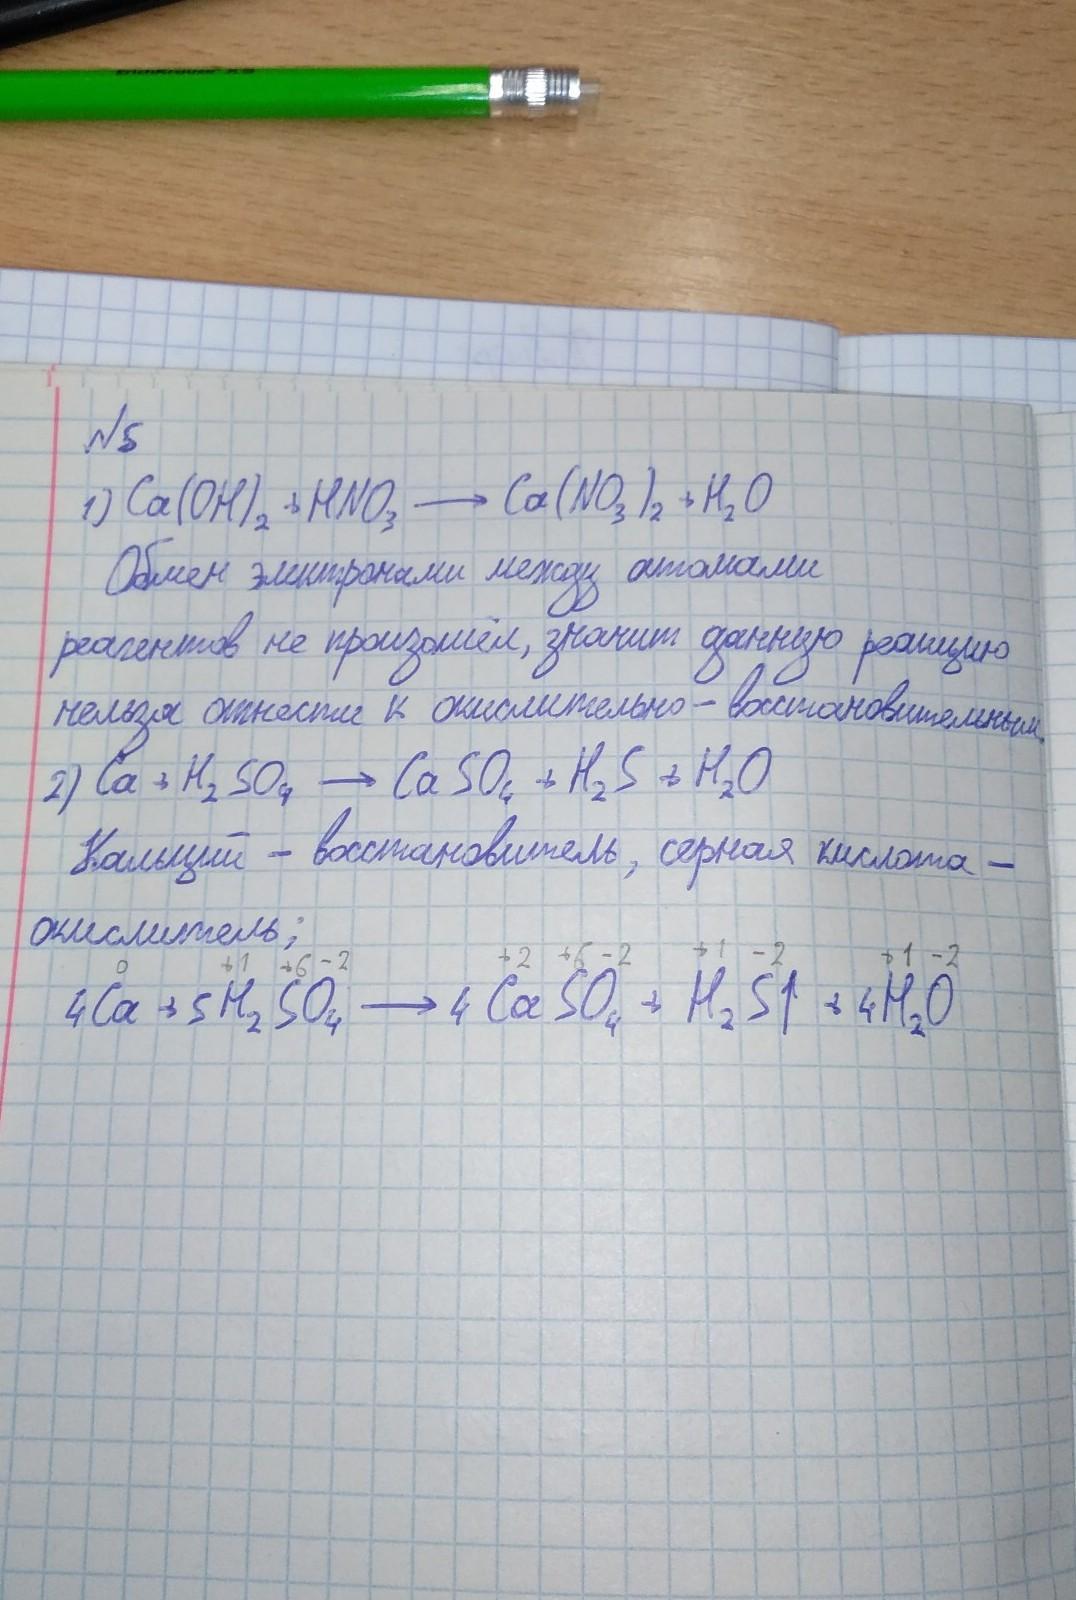 ErichKrause
№5
1) Ca(OH)₂ + HNO₃ → Ca(NO₃)₂ + H₂O
Обмен электронами между атомами
реагентов не произошёл, значит данную реакцию
нельзя отнести к окислительно-восстановительным.
2) Ca + H₂SO₄ → CaSO₄ + H₂S + H₂O
Кальций – восстановитель, серная кислота –
окислитель;
0 +1 +6 -2 +2 +6 -2 +1 -2 +1 -2
4Ca + 5H₂SO₄ → 4CaSO₄ + H₂S↑ + 4H₂O